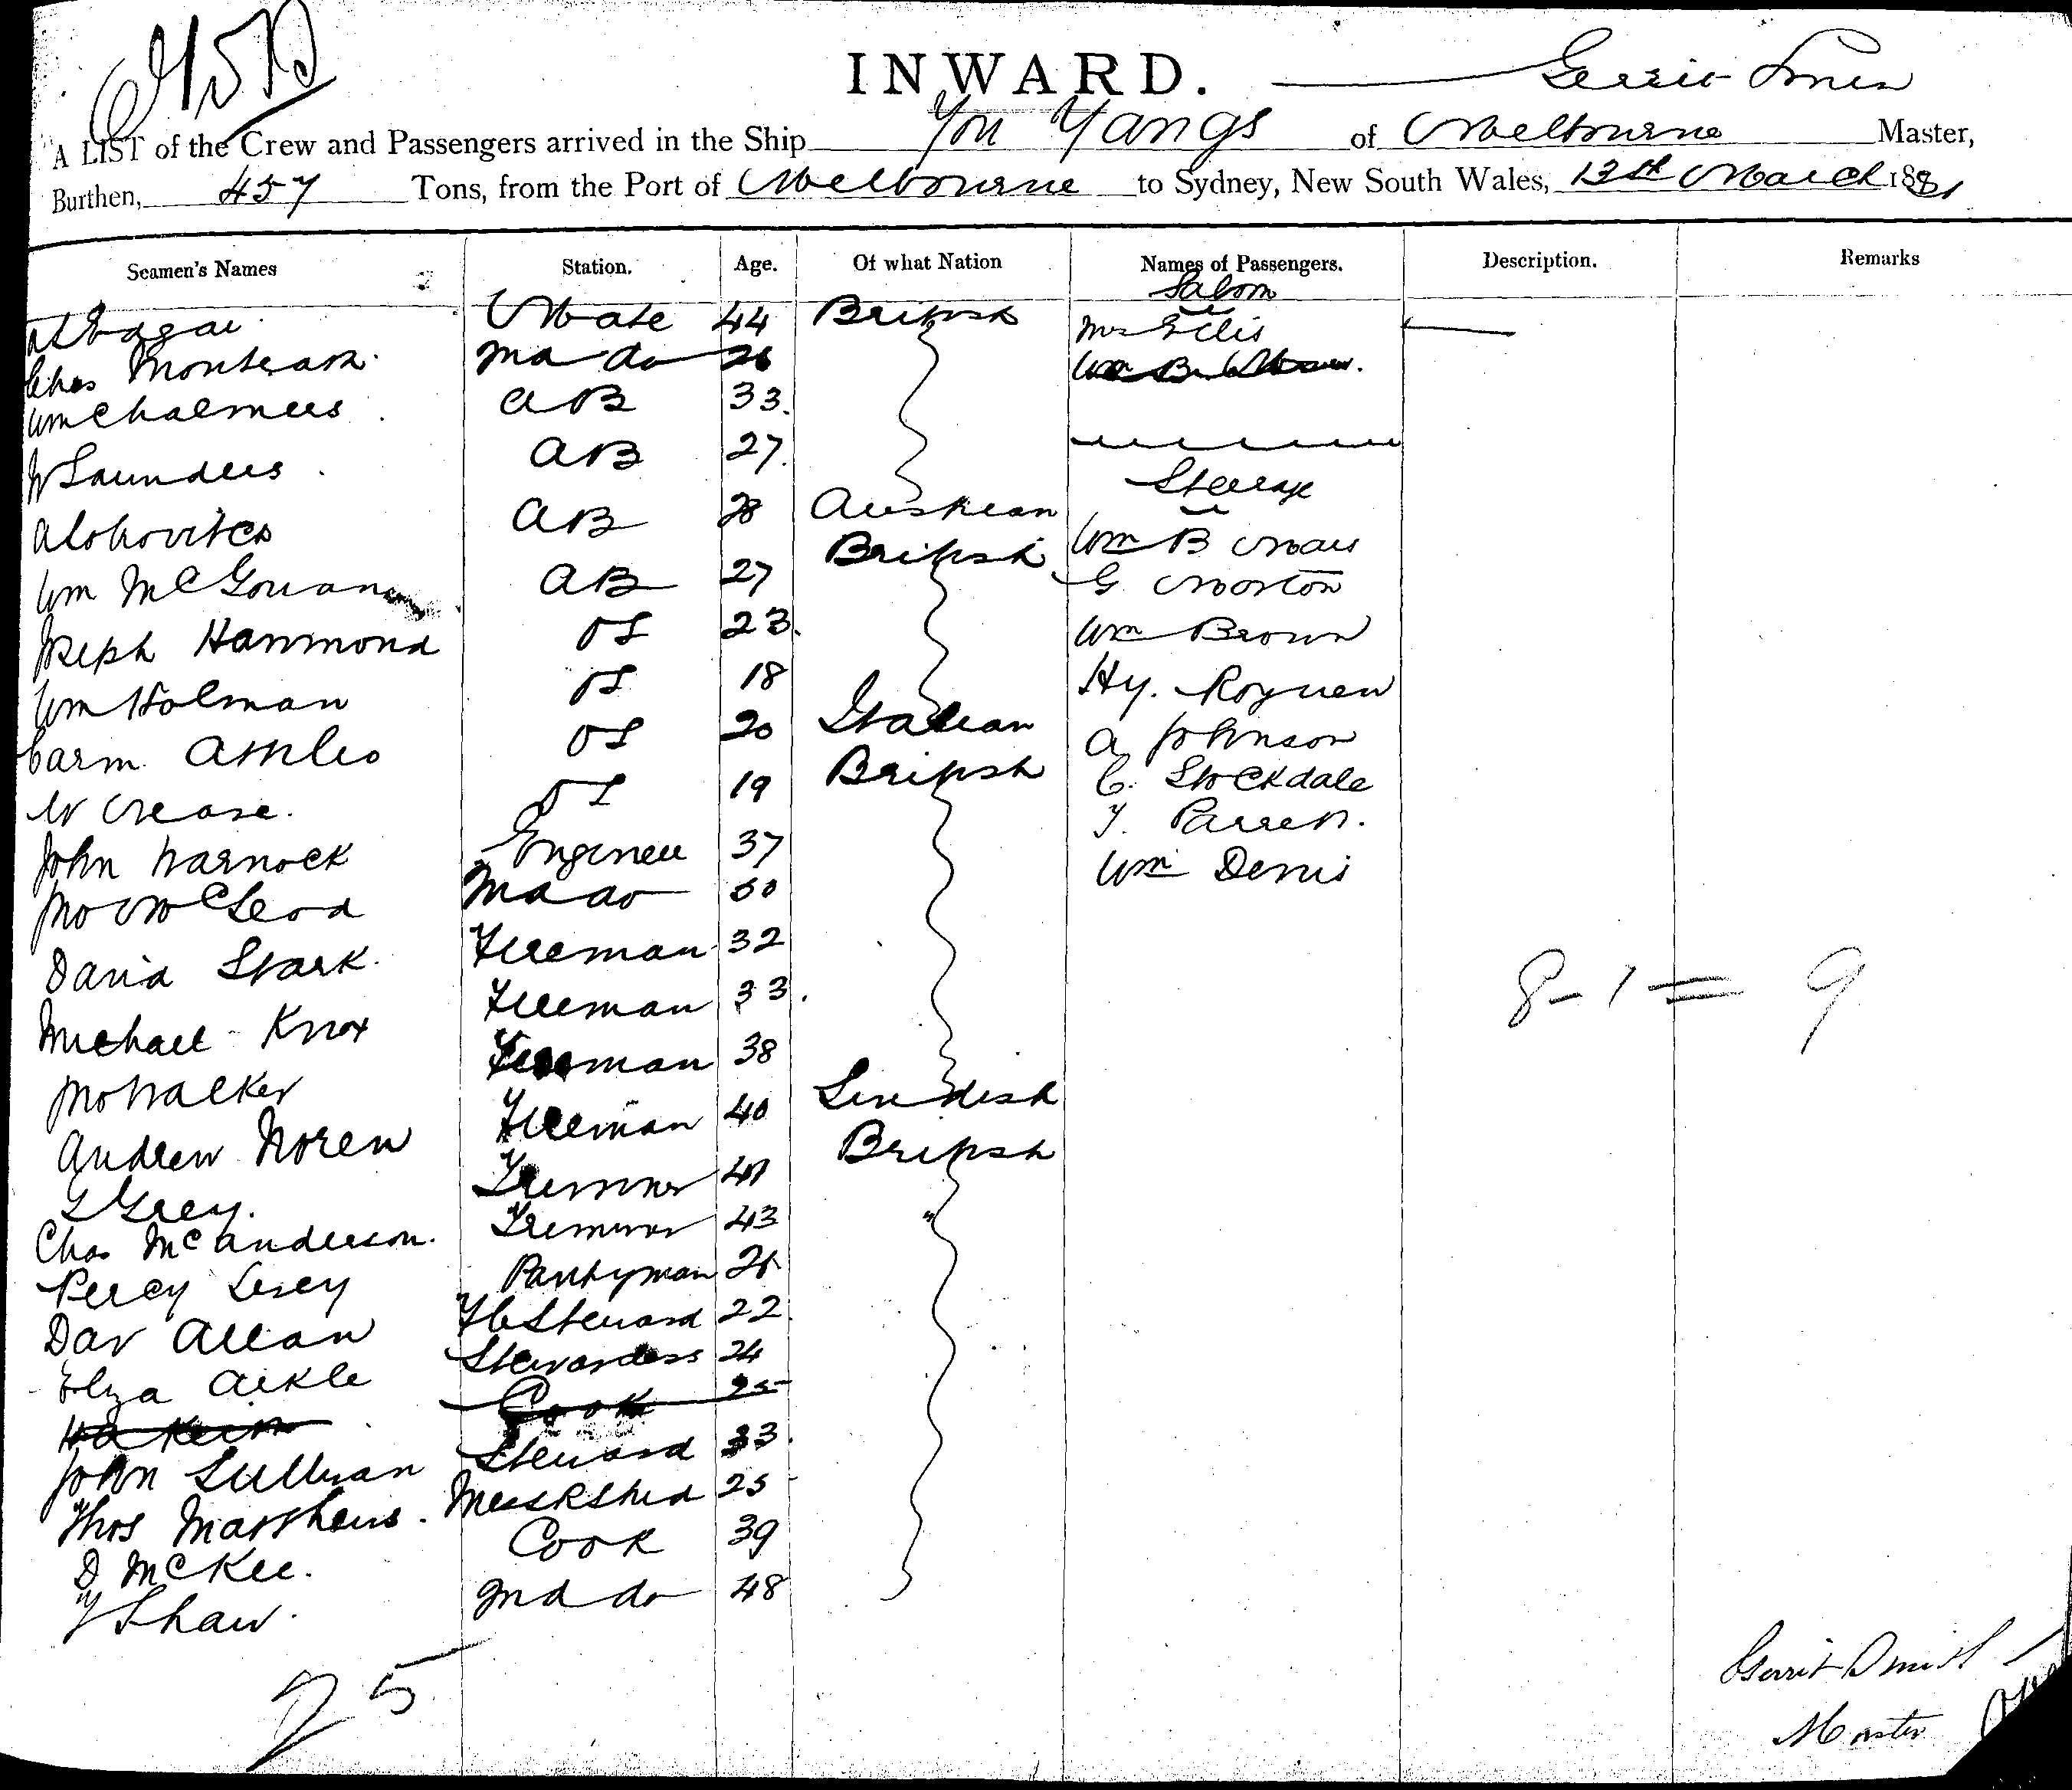 INWARD. Gerrit Smith
A LIST of the Crew and Passengers arrived in the Ship You Yangs of Melbourne Master,
Burthen, 457 Tons, from the Port of Melbourne to Sydney, New South Wales, 13th March 1881
Seamen's Names Station. Age. Of what Nation Names of Passengers. Description. Remarks
Saloon
Mate 44 British Mrs Ellis
Chas Monteath 2nd do 26
Wm Chalmers AB 33.
W Saunders AB 27. Steerage
AB 28 Austrian
Wm McGowan AB 27 British Wm B
Joseph Hammond OS 23. G Morton
Wm Holman OS 18 Wm Brown
Carm OS 20 Italian Hy.
W Crease. OS 19 British A Johnson
John Warnock Engineer 37 C. Stockdale
Jno McLeod 2nd do 30 T. Parrett.
David Stark Fireman 32 Wm Denis
Michael Knox Fireman 33. 8-1 = 9
Jno Walker Fireman 38
Andrew Noren Fireman 40 Swedish
G Grey. Trimmer 41 British
Chas McAnderson. Trimmer 43
Percy Pantryman 25
Dav Allan FC Steward 22
Eliza Aikle Stewardess 24
Cook 25
John Sullivan Steward 33.
Thos Matthews. Mess R Stwd 25
D McKee. Cook 39
T Shaw. 2nd do 48
25
Gerrit Smith
Master